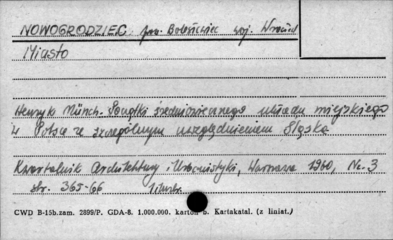 NOWOGRODZIEC pow. Bolesławiec woj. Wrocław
Miasto
Henryk Münch. Początki średniowiecznego układu miejskiego
w Polsce ze szczególnym uwzględnieniem Śląska
Kwartalnik Architektury i Urbanistyki, Warszawa 1960, Nr. 3
str. 365-66
CWD B-15b.zam. 2899/P. GDA-8. 1.000.000. karton b. Kartakatal. (z liniat.)